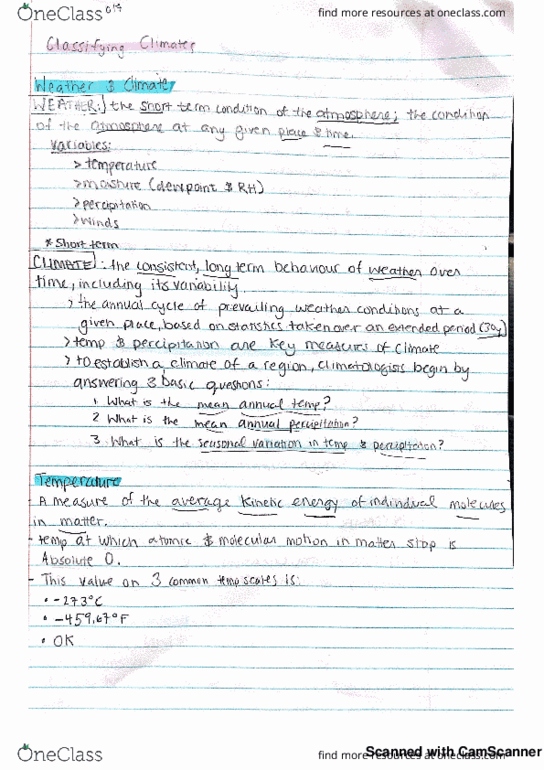 OneClass
find more resources at oneclass.com
Classifying Climates
Weather & Climate
WEATHER: the short term condition of the atmosphere; the condition
of the atmosphere at any given place & time.
Variables:
> temperature
> moisture (dewpoint & RH)
> percipitation
> winds
* Short term
CLIMATE: the consistent, long term behaviour of weather over
time, including its variability
> the annual cycle of prevailing weather conditions at a
given place, based on statistics taken over an extended period (30y)
> temp & percipitation are key measures of climate
> to establish a climate of a region, climatologists begin by
answering 3 basic questions:
1. What is the mean annual temp?
2. What is the mean annual percipitation?
3. What is the seasonal variation in temp & percipitation?
Temperature
- A measure of the average kinetic energy of individual molecules
in matter.
- temp at which atomic & molecular motion in matter stop is
Absolute 0.
- This value on 3 common temp scales is:
• -273°C
• -459.67°F
• 0K
OneClass
find more resources at oneclass.com
Scanned with CamScanner